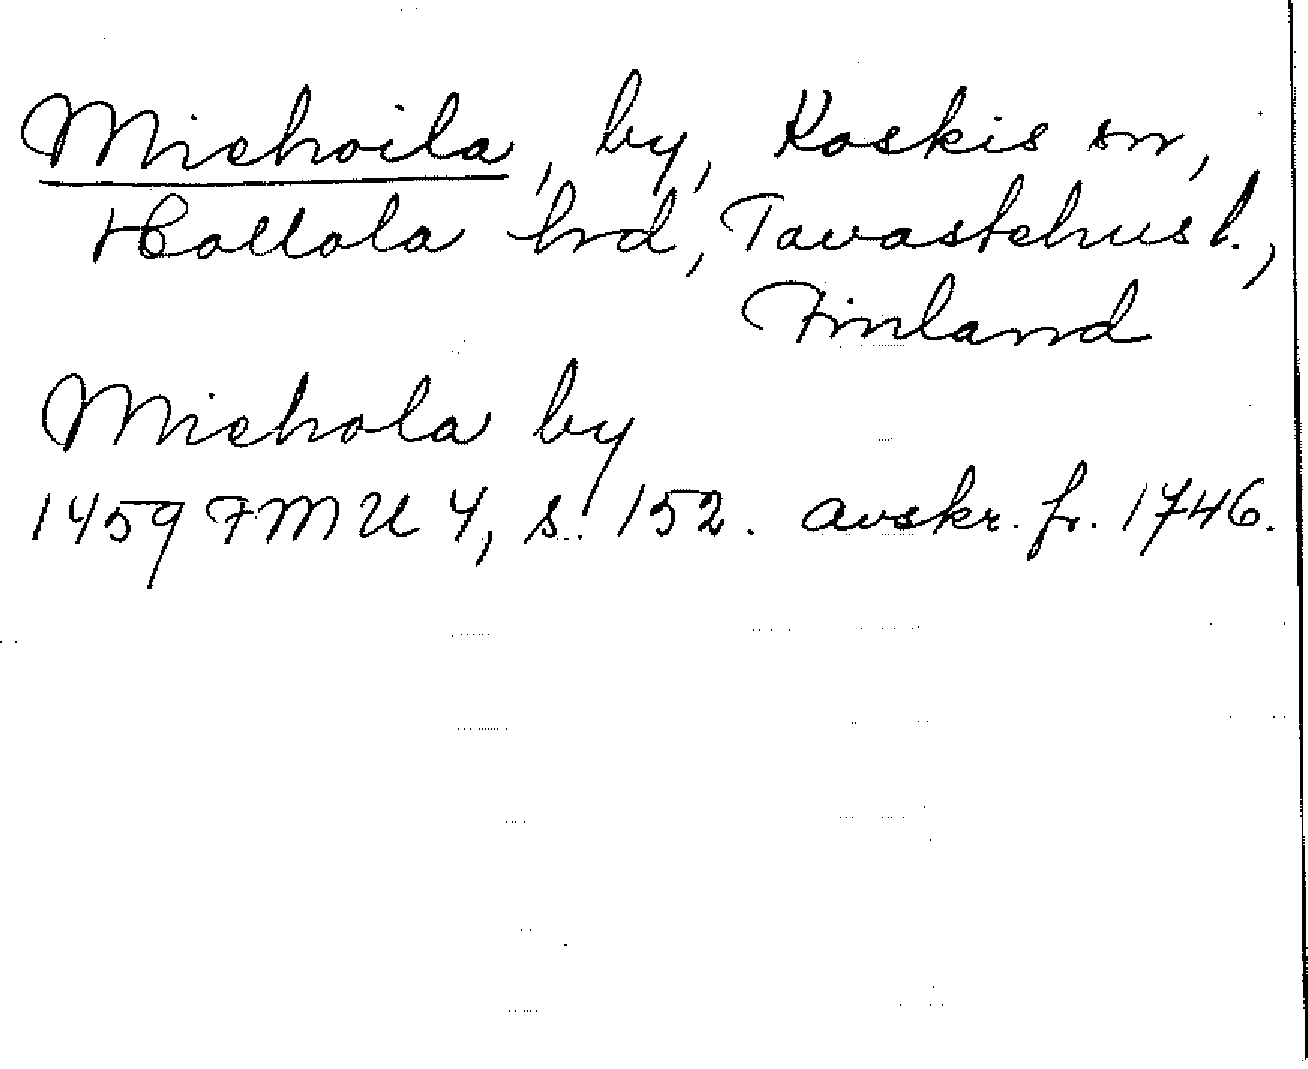 Miehoila, by, Koskis sn,
Hollola hrd, Tavastehus l.,
Finland
Miehola by
1459 FMU 4, s. 152. avskr. fr. 1746.